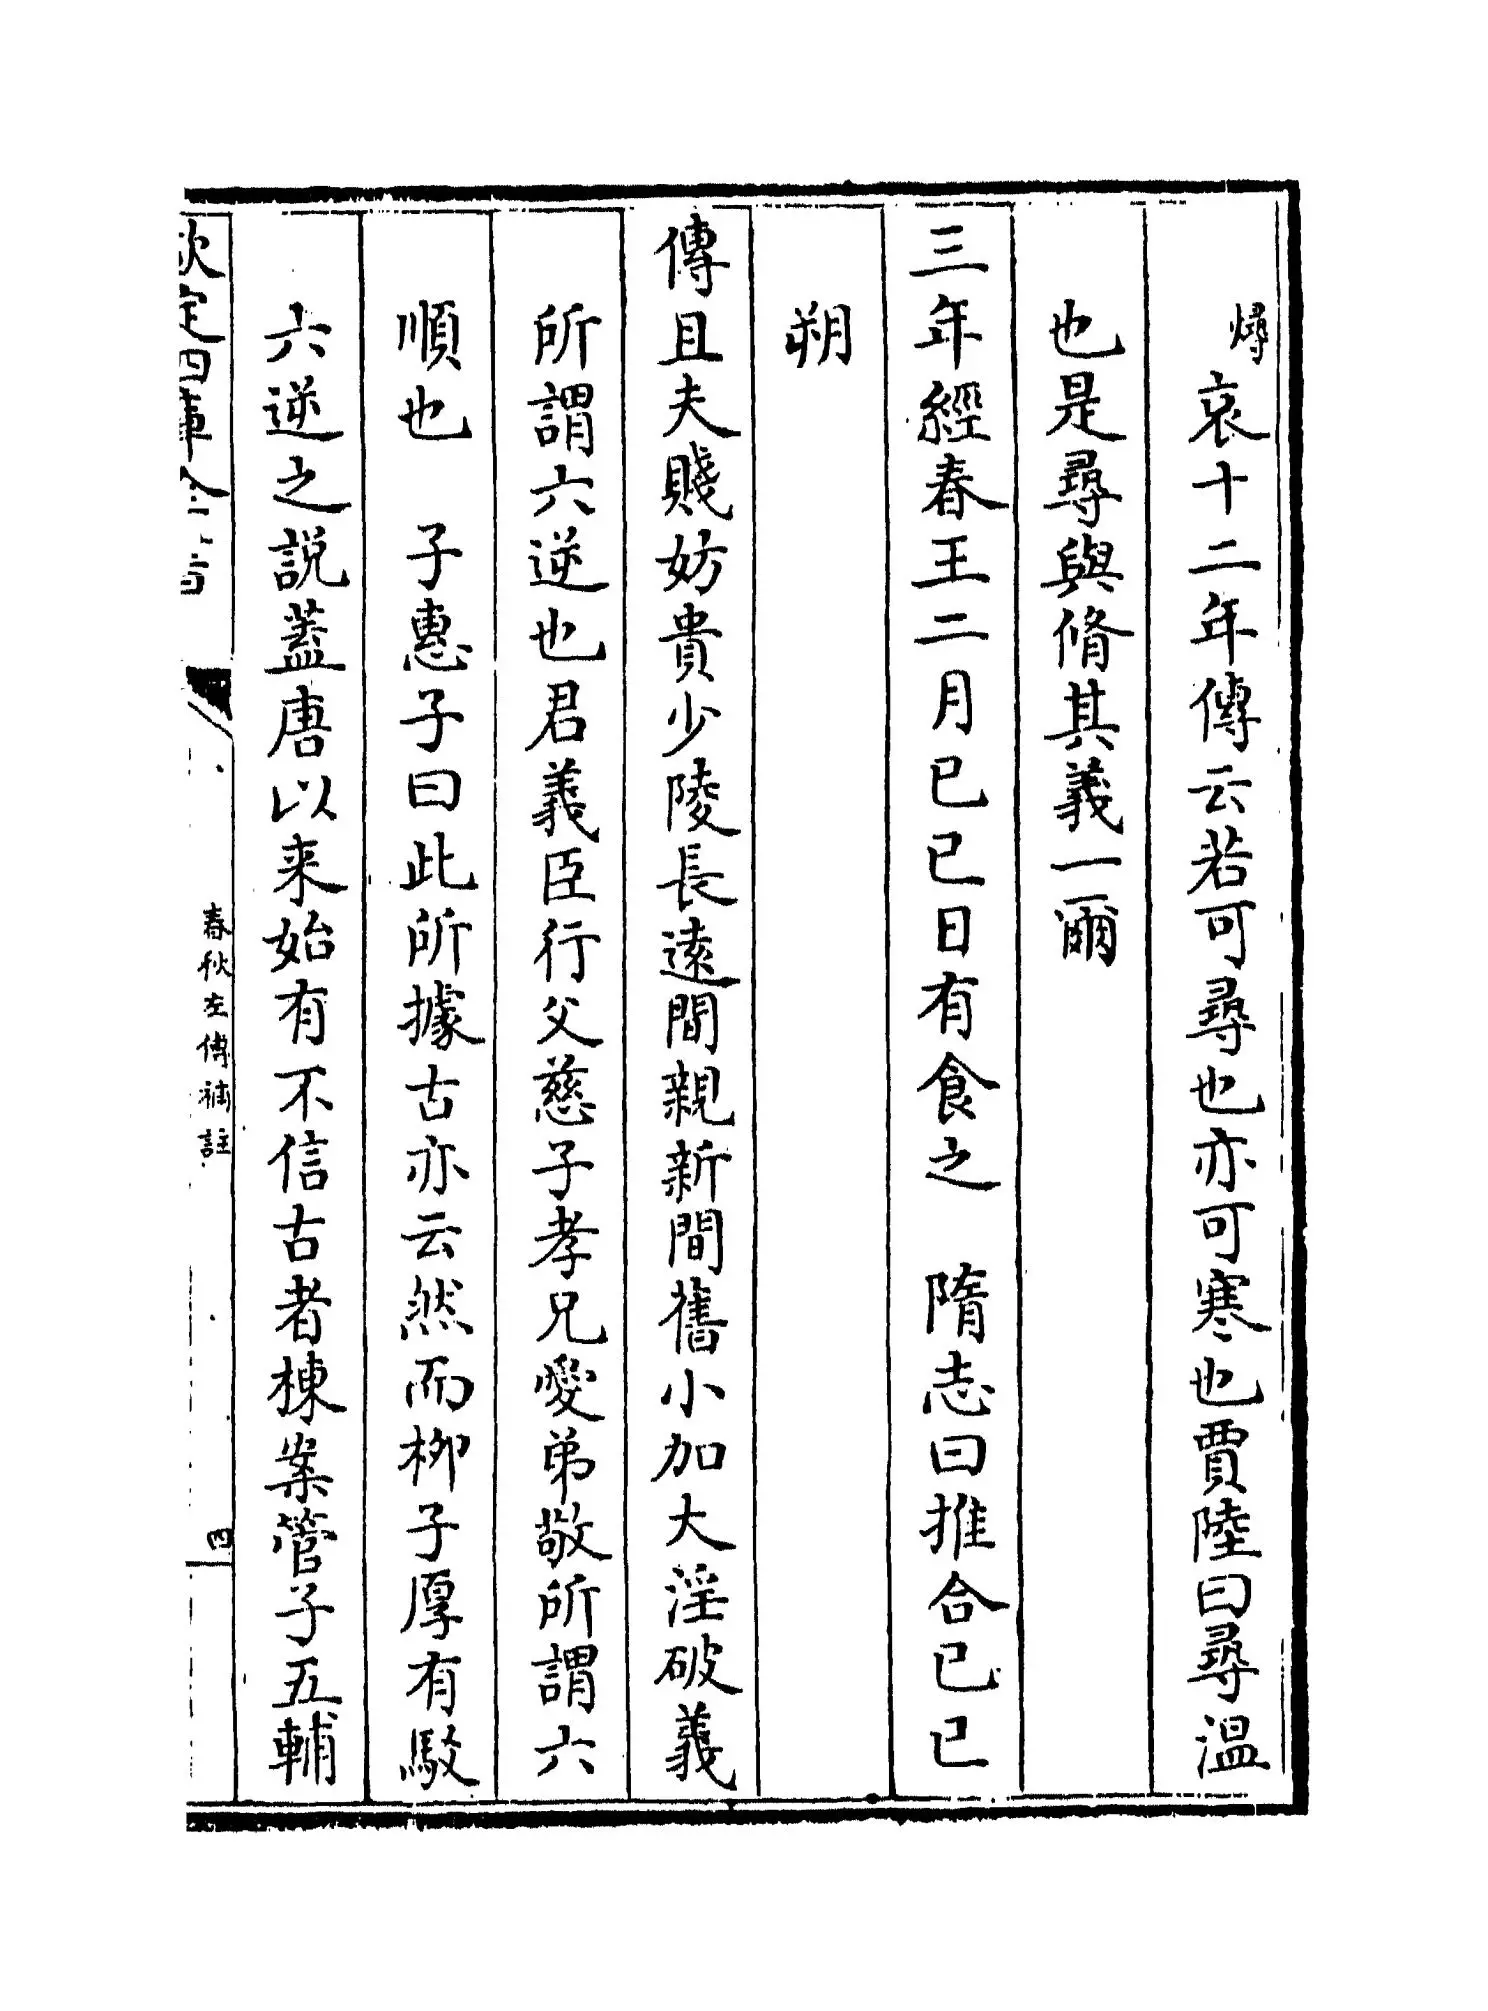 燖哀十二年傳云若可尋也亦可寒也賈陸曰尋溫
也是尋與脩其義一爾
三年經春王二月已已日有食之　隋志曰推合已已
朔
傳且夫賤妨貴少陵長遠間親新間舊小加大淫破義
所謂六逆也君義臣行父慈子孝兄愛弟敬所謂六
順也　子惠子曰此所據古亦云然而柳子厚有駁
六逆之説蓋唐以来始有不信古者棟案管子五輔
欽定四庫全書
春秋左傳補註
四